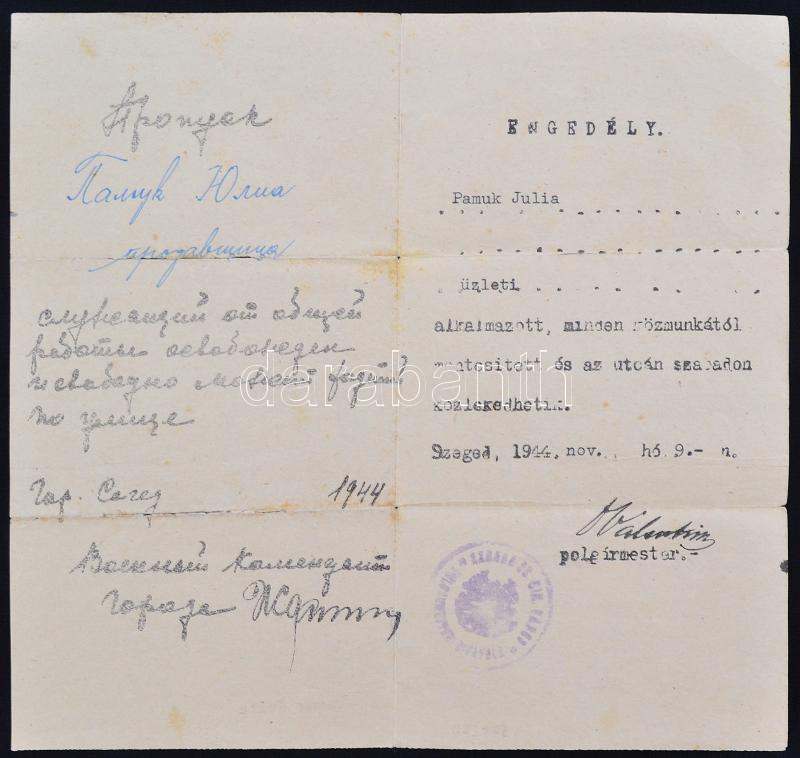 Пропуск
Памук Юлиа
продавщица
служащий от общей
работы освобожден
и свабодно может ходит
по улице
Гор. Сегед 1944
Военный Комендант
Города
ENGEDÉLY.
Pamuk Julia
üzleti
alkalmazott, minden közmunkától
mentesitett és az utcán szabadon
közlekedhetik.
Szeged, 1944. nov. hó 9.- n.
polgármester.-
darabanth